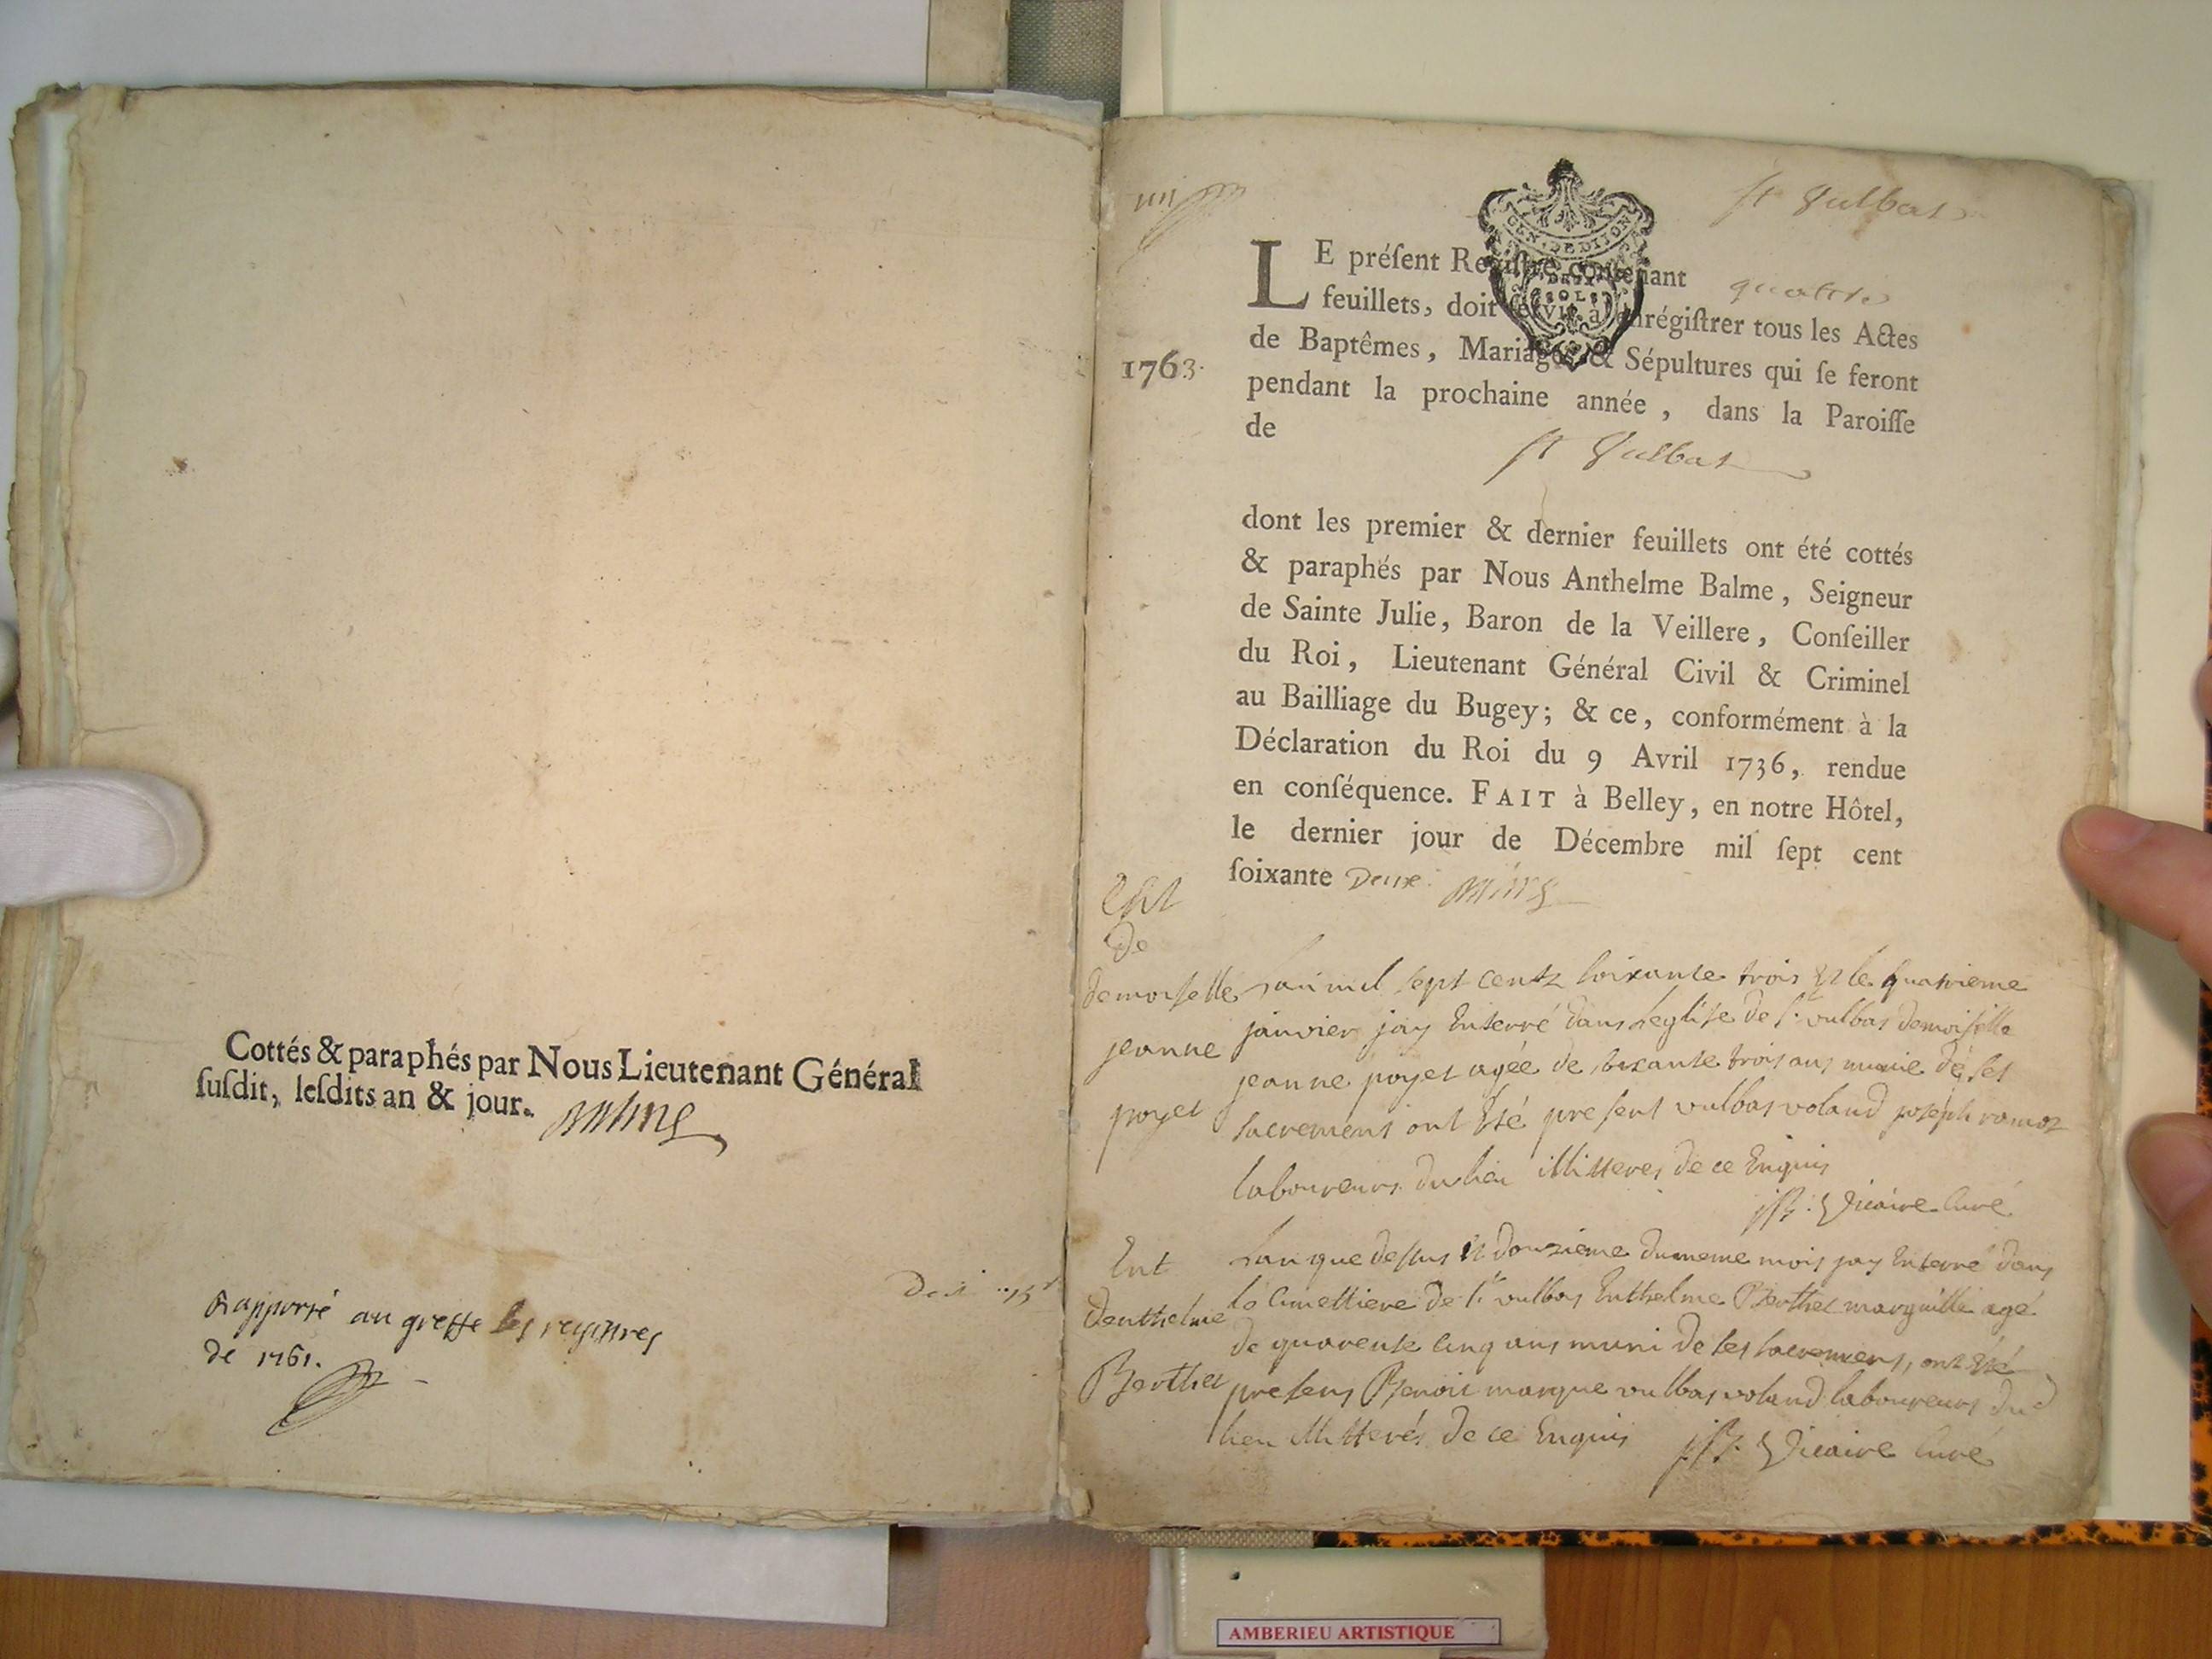 Cottés & paraphés par Nous Lieutenant Général
ſuſdit, leſdits an & jour.
Rapporté au greffe les registres
de 1761.
st Vulbas
GEN. DE DIJON
DEUX
SOLS
LE préſent Regiſtre contenant quattre
feuillets, doit ſervir à enrégiſtrer tous les Actes
de Baptêmes, Mariages, & Sépultures qui ſe feront
1763.
pendant la prochaine année, dans la Paroiſſe
de
st Vulbas
dont les premier & dernier feuillets ont été cottés
& paraphés par Nous Anthelme Balme, Seigneur
de Sainte Julie, Baron de la Veillere, Conſeiller
du Roi, Lieutenant Général Civil & Criminel
au Bailliage du Bugey; & ce, conformément à la
Déclaration du Roi du 9 Avril 1736, rendue
en conſéquence. FAIT à Belley, en notre Hôtel,
le dernier jour de Décembre mil ſept cent
ſoixante Deux.
Ent
de
demoiselle
jeanne
poyet
Lan mil sept centz soixante trois et le quatrieme
janvier jay Enterré dans Leglise de st vulbas demoiselle
jeanne poyet agée de soixante trois ans munie de ses
sacremens ont Esté present vulbas voland joseph ramoz
laboureurs du lieu illitteres de ce Enquis
Vicaire Curé
Ent
denthelme
Berthet
Lan que dessus et douzieme du meme mois jay Enterré dans
le Cimettiere de st vulbas Enthelme Berthet marguille agé
de quarente cinq ans muni de ses sacremens, ont Esté
presens Benoit marque vulbas voland laboureurs dud
lieu illitterés de ce Enquis Vicaire Curé
AMBERIEU ARTISTIQUE